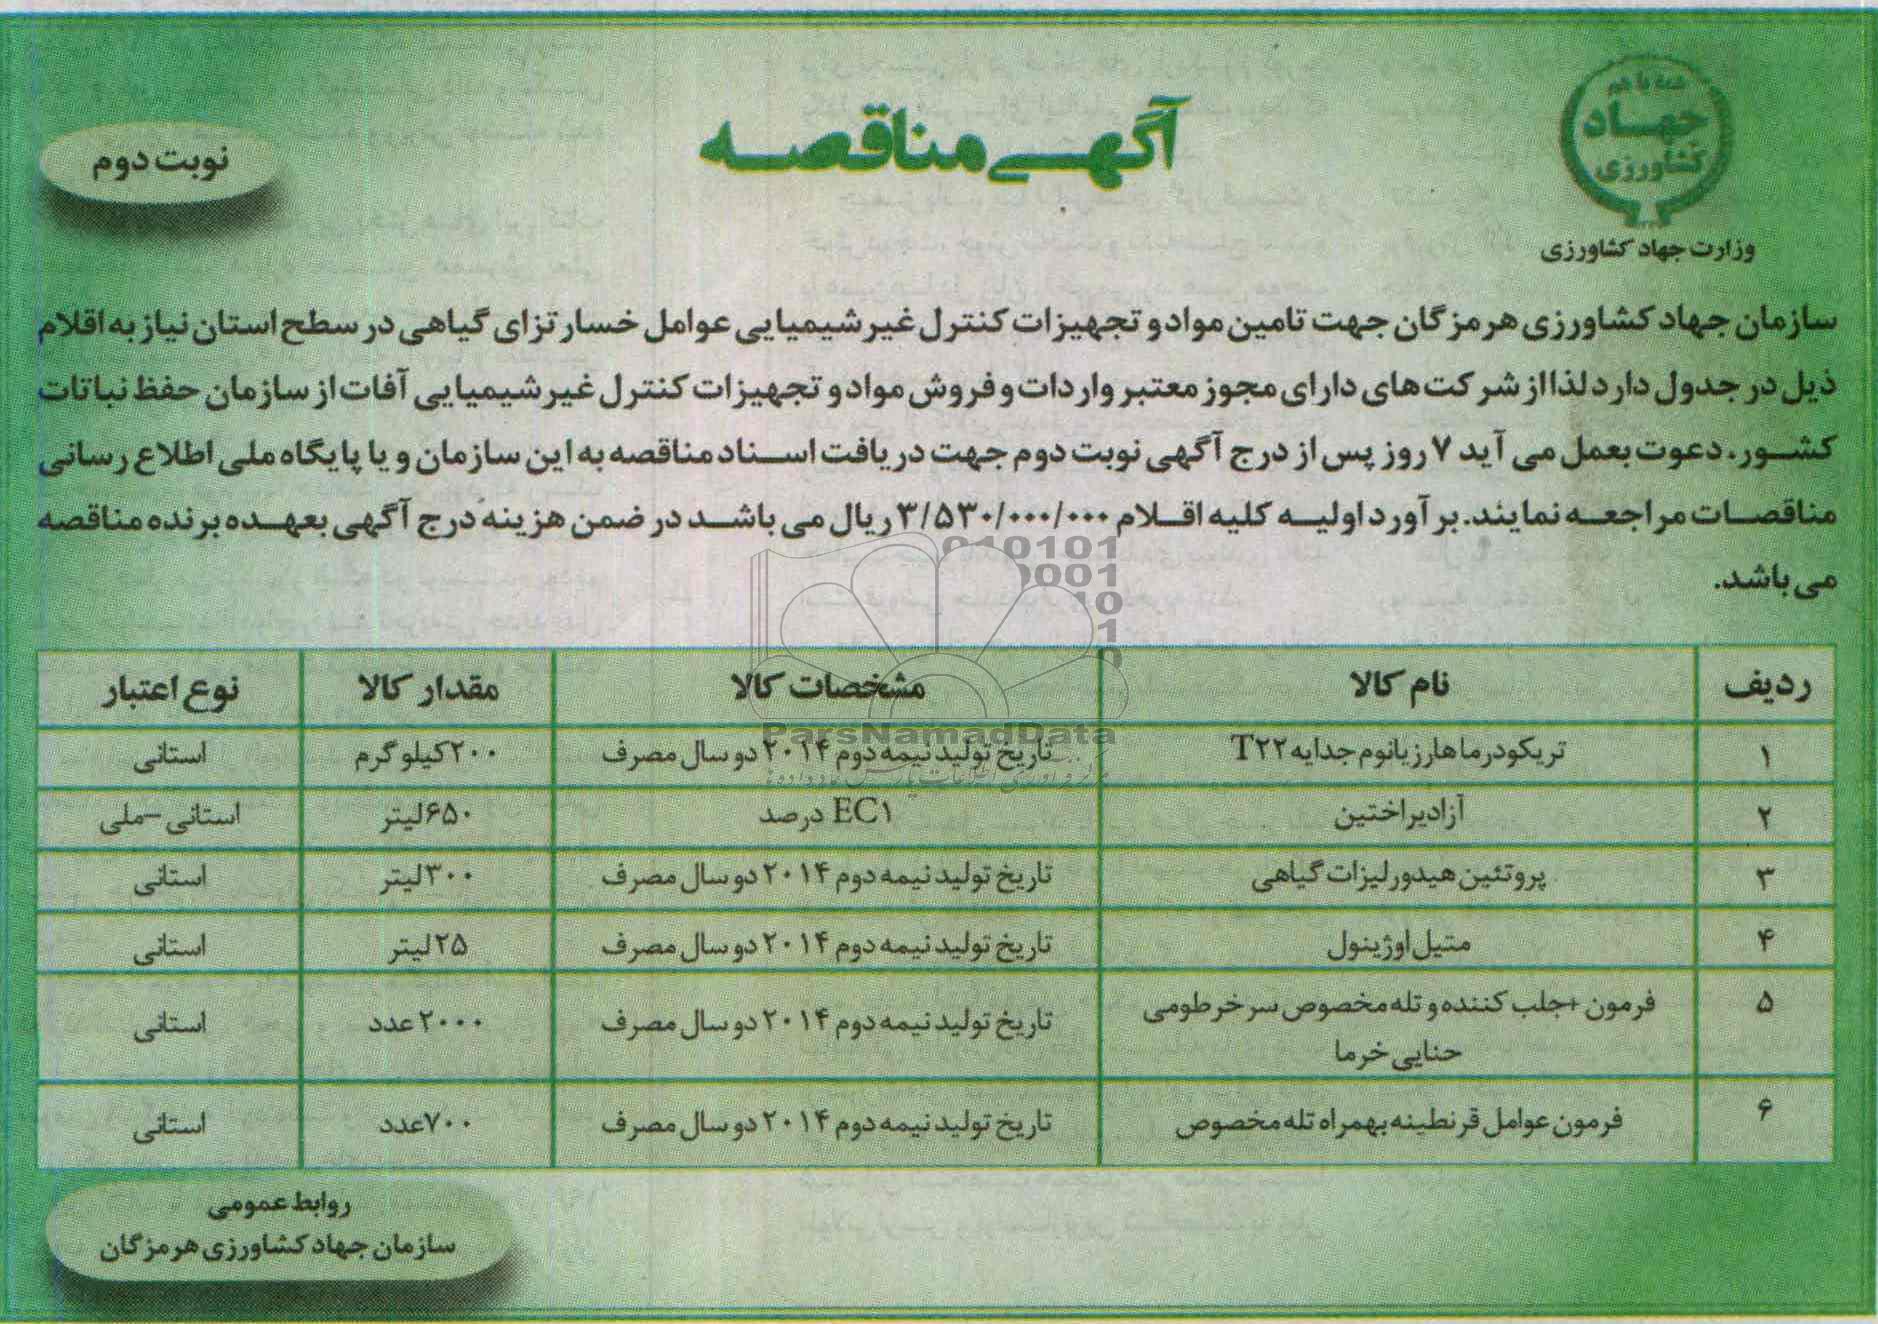 همه با هم
جهاد
کشاورزی
وزارت جهاد کشاورزی
آگهی مناقصه
نوبت دوم
سازمان جهاد کشاورزی هرمزگان جهت تامین مواد و تجهیزات کنترل غیر شیمیایی عوامل خسارتزای گیاهی در سطح استان نیاز به اقلام
ذیل در جدول دارد لذا از شرکت های دارای مجوز معتبر واردات و فروش مواد و تجهیزات کنترل غیر شیمیایی آفات از سازمان حفظ نباتات
کشور. دعوت بعمل می آید ۷ روز پس از درج آگهی نوبت دوم جهت دریافت اسناد مناقصه به این سازمان و یا پایگاه ملی اطلاع رسانی
مناقصات مراجعه نمایند. بر آورد اولیه کلیه اقلام ۳/۵۳۰/۰۰۰/۰۰۰ ریال می باشد در ضمن هزینه درج آگهی بعهده برنده مناقصه
می باشد.
ردیف نام کالا مشخصات کالا مقدار کالا نوع اعتبار
۱ تریکودرما هارزیانوم جدایه T۲۲ تاریخ تولید نیمه دوم ۲۰۱۴ دو سال مصرف ۲۰۰ کیلو گرم استانی
۲ آزادیراختین EC۱ درصد ۶۵۰ لیتر استانی – ملی
۳ پروتئین هیدورلیزات گیاهی تاریخ تولید نیمه دوم ۲۰۱۴ دو سال مصرف ۳۰۰ لیتر استانی
۴ متیل اوژینول تاریخ تولید نیمه دوم ۲۰۱۴ دو سال مصرف ۲۵ لیتر استانی
۵ فرمون +جلب کننده و تله مخصوص سرخرطومی
حنایی خرما تاریخ تولید نیمه دوم ۲۰۱۴ دو سال مصرف ۲۰۰۰ عدد استانی
۶ فرمون عوامل قرنطینه بهمراه تله مخصوص تاریخ تولید نیمه دوم ۲۰۱۴ دو سال مصرف ۷۰۰ عدد استانی
روابط عمومی
سازمان جهاد کشاورزی هرمزگان
010101
0001
10
1
0
ParsNamadData